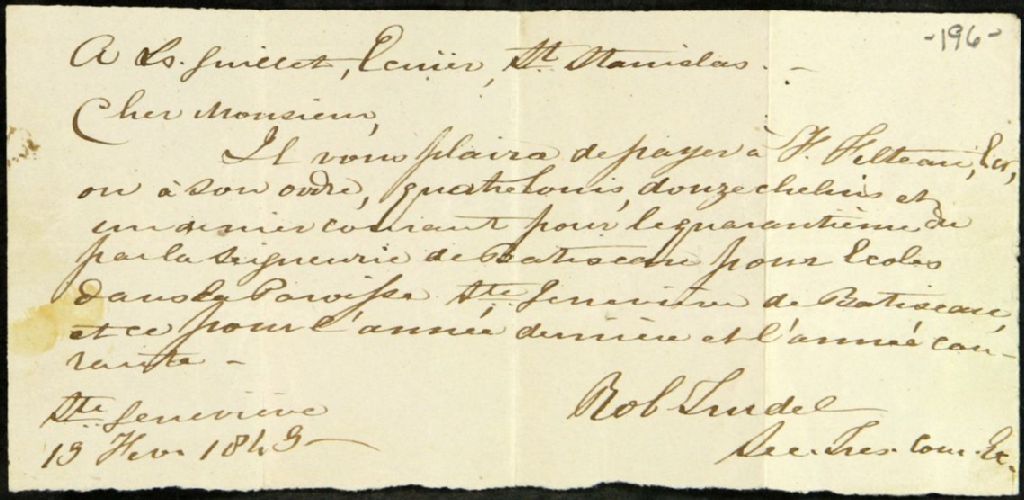 -196-
A Ls. Guillet, Ecuier, St. Stanislas. -
Cher Monsieur,
Il vous plaira de payer à F. Filteau, Ecr,
ou à son ordre, quatre louis, douze chelins et
un denier courant pour le quarantième du
par la Seigneurie de Batiscan pour Ecoles
dans la Paroisse Ste Geneviève de Batiscan,
et ce pour l'année dernière et l'année cou-
rante -
Ste Geneviève
Rob Trudel
Fevr
Sec. Tres. Com. Ec.